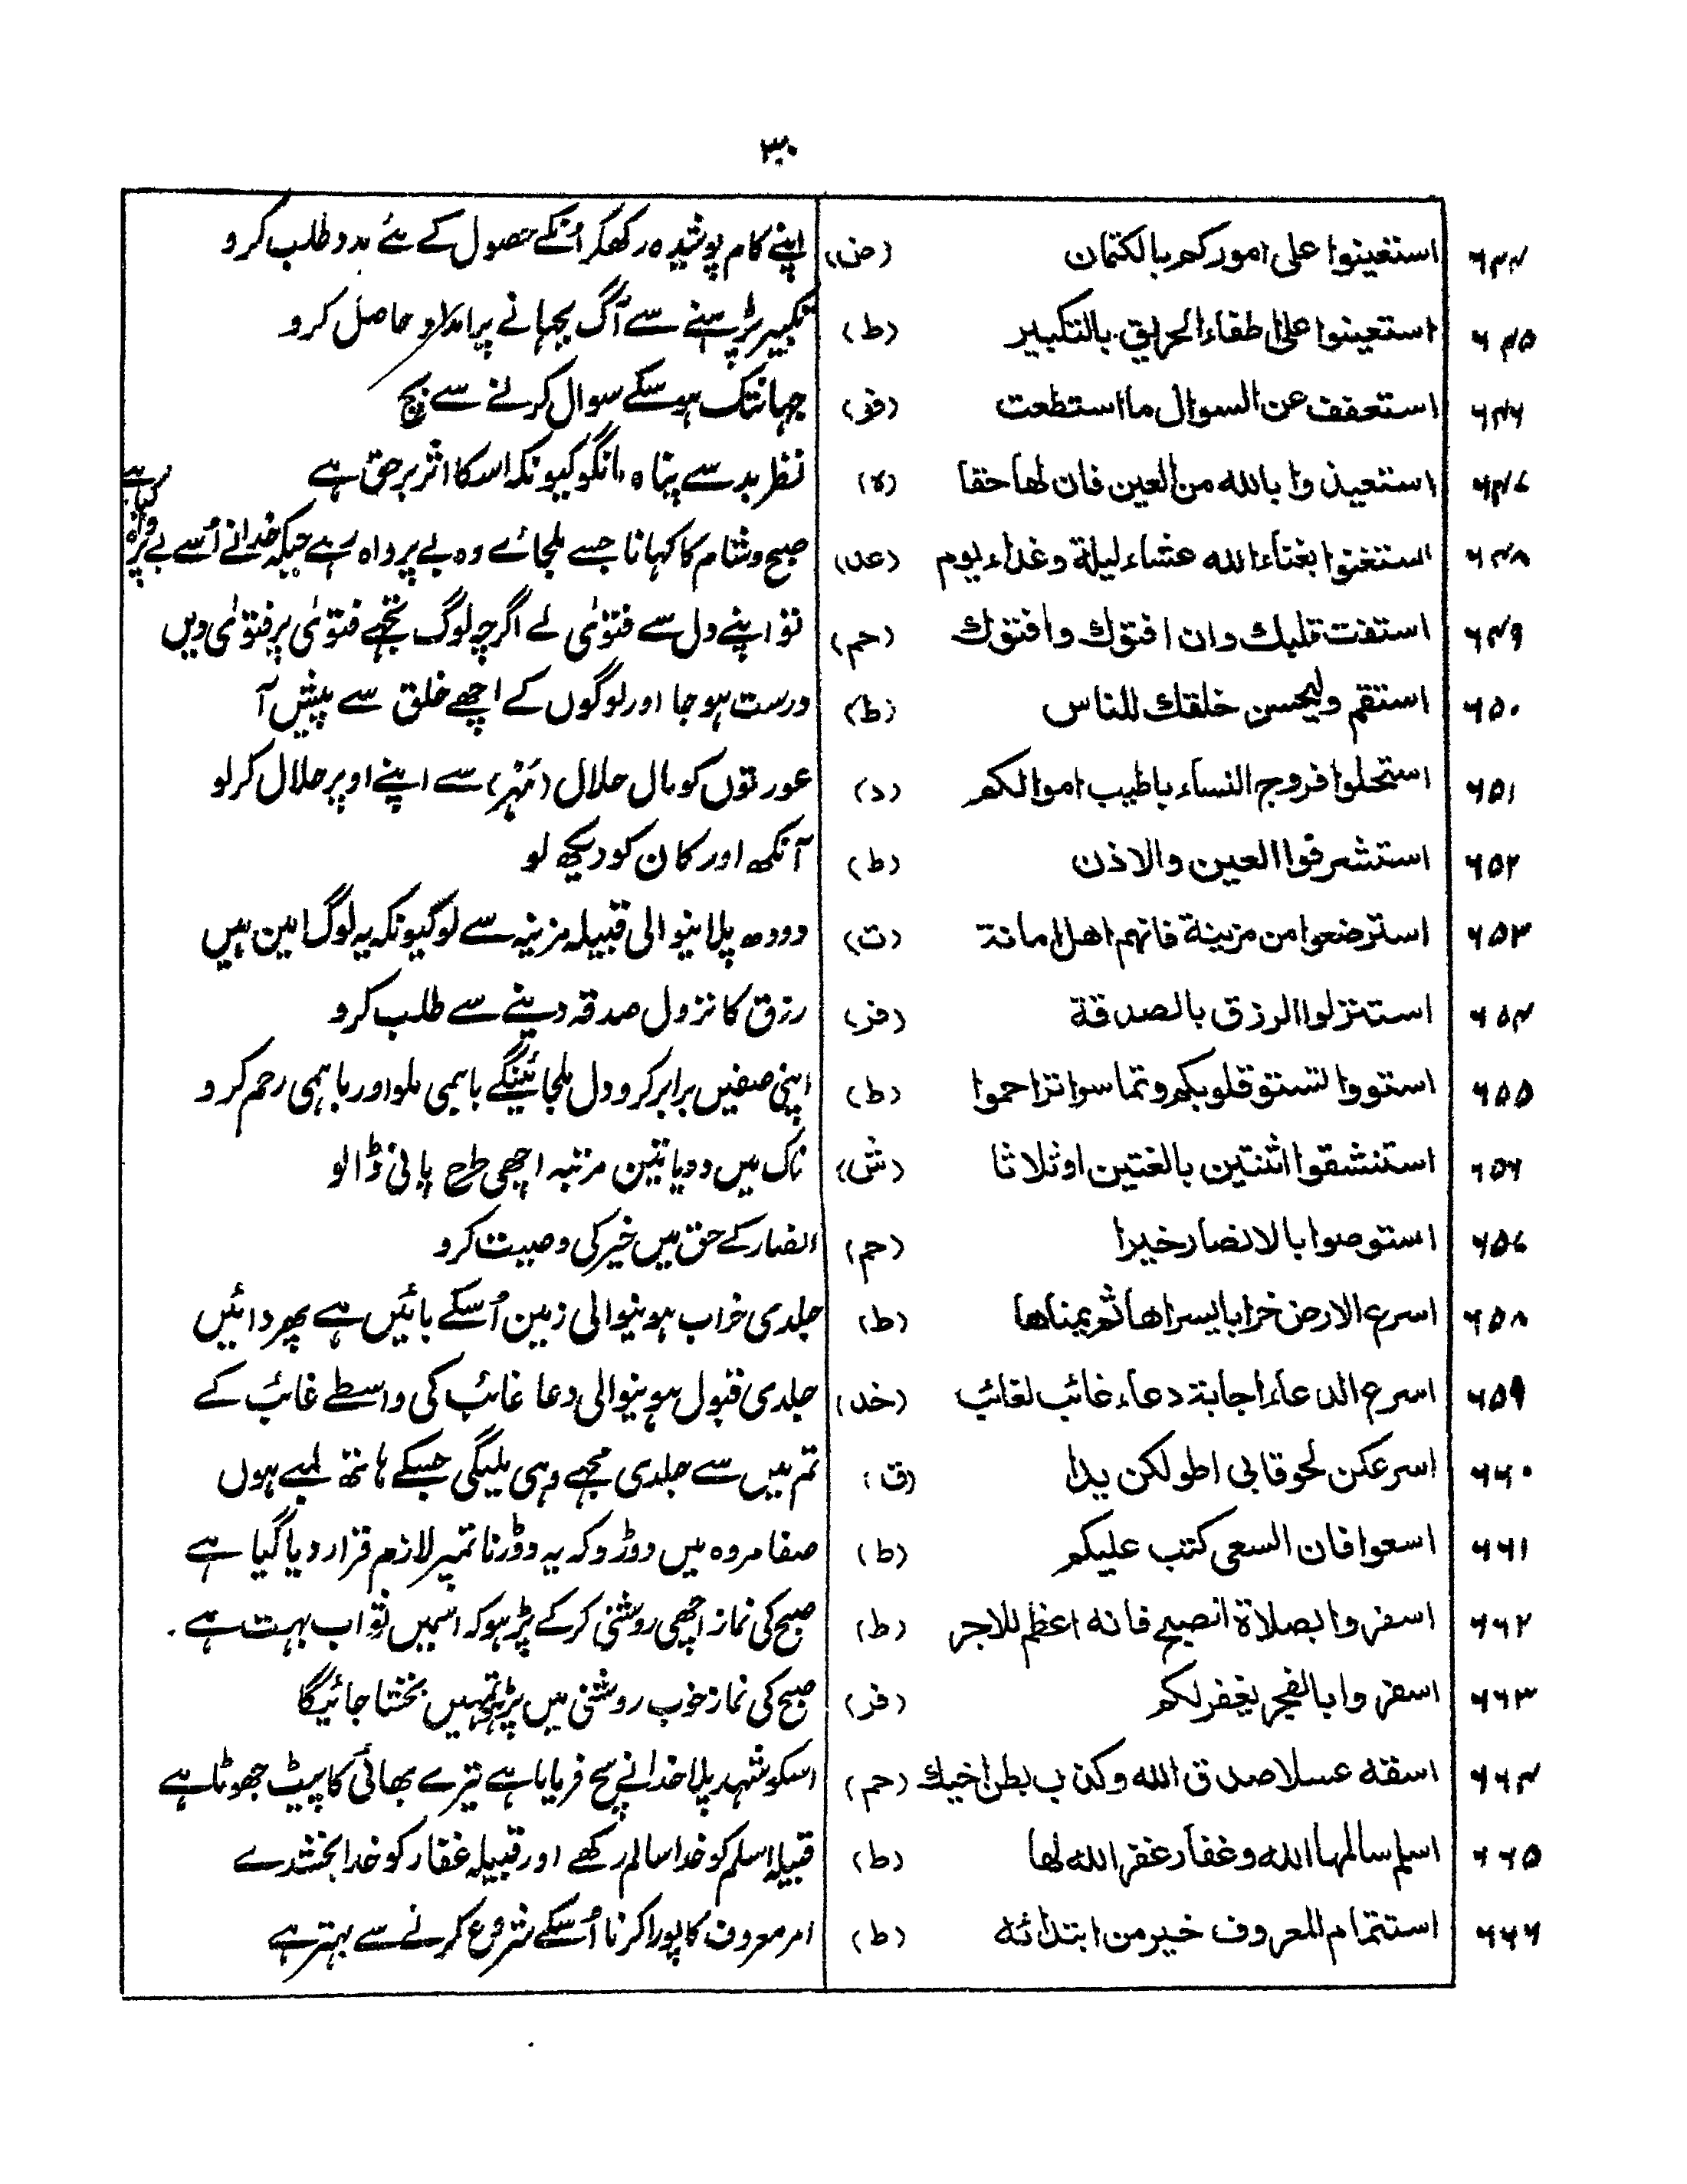 ۳۰
۶۴۴ استعینوا علی امورکم بالکتمان (ض) اپنے کام پوشیدہ رکھکر اُنکے حصول کے لئے مدد طلب کرو
۶۴۵ استعینوا علی اطفاء الحریق بالتکبیر (ط) تکبیر پڑہنے سے آگ بجہانے پر امداد حاصل کرو
۶۴۶ استعفف عن السوال ما استطعت (فر) جہانتک ہوسکے سوال کرنے سے بچ
۶۴۷ استعیذوا بالله من العین فان لها حقا (ہ) نظر بد سے پناہ مانگو کیونکہ اسکا اثر برحق ہے
۶۴۸ استغنوا بغناء الله عشاء لیلة وغداء یوم (عد) صبح وشام کا کہانا جسے ملجائے وہ بے پرواہ رہے جبکہ خدا نے اُسے بے پرواہ کیا ہے
۶۴۹ استفت قلبك وان افتوك وافتوك (حم) تو اپنے دل سے فتوٰی لے اگرچہ لوگ تجھے فتوٰی پر فتوٰی دیں
۶۵۰ استقم ولیحسن خلقك للناس (ط) درست ہوجا اور لوگوں کے اچھے خلق سے پیش آ
۶۵۱ استحلوا فروج النساء باطیب اموالکم (د) عورتوں کو مال حلال (مَہْر) سے اپنے اوپر حلال کرلو
۶۵۲ استشرفوا العین والاذن (ط) آنکھ اور کان کو دیکھ لو
۶۵۳ استرضعوا من مزینة فانهم اهل امانة (ت) دودھ پلانیوالی قبیلہ مزینہ سے لو کیونکہ یہ لوگ امین ہیں
۶۵۴ استنزلوا الرزق بالصدقة (فر) رزق کا نزول صدقہ دینے سے طلب کرو
۶۵۵ استووا تستو قلوبکم وتماسوا تراحموا (ط) اپنی صفیں برابر کرو دل ملجائینگے باہمی ملو اور باہمی رحم کرو
۶۵۶ استنشقوا اثنتین بالغتین او ثلاثا (ش) ناک میں دو یا تین مرتبہ اچھی طرح پانی ڈالو
۶۵۷ استوصوا بالانصار خیرا (حم) انصار کے حق میں خیر کی وصیت کرو
۶۵۸ اسرع الارض خرابا یسراها ثم یمناها (ط) جلدی خراب ہونیوالی زمین اُسکے بائیں ہے پھر دائیں
۶۵۹ اسرع الدعاء اجابة دعاء غائب لغائب (خد) جلدی قبول ہونیوالی دعا غائب کی واسطے غائب کے
۶۶۰ اسرعکن لحوقا بی اطولکن یدا (ق) تم میں سے جلدی مجھے وہی ملیگی جسکے ہاتھ لمبے ہوں
۶۶۱ اسعوا فان السعی کتب علیکم (ط) صفا مروہ میں دوڑو کہ یہ دوڑنا تمپر لازم قرار دیا گیا ہے
۶۶۲ اسفروا بصلاة الصبح فانه اعظم للاجر (ط) صبح کی نماز اچھی روشنی کرکے پڑہو کہ اسمیں ثواب بہت ہے ۔
۶۶۳ اسفروا بالفجر یغفر لکم (فر) صبح کی نماز خوب روشنی میں پڑہو تمہیں بخشا جائیگا
۶۶۴ اسقه عسلا صدق الله وکذب بطن اخیك (حم) اسکو شہد پلا خدا نے سچ فرمایا ہے تیرے بھائی کا پیٹ جھوٹا ہے
۶۶۵ اسلم سالمها الله وغفار غفر الله لها (ط) قبیلہ اسلم کو خدا سالم رکھے اور قبیلہ غفار کو خدا بخشدے
۶۶۶ استتمام المعروف خیر من ابتدائه (ط) امر معروف کا پورا کرنا اُسکے شروع کرنے سے بہتر ہے